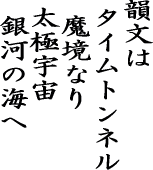 韻文は
タイムトンネル
魔境なり
太極宇宙
銀河の海へ